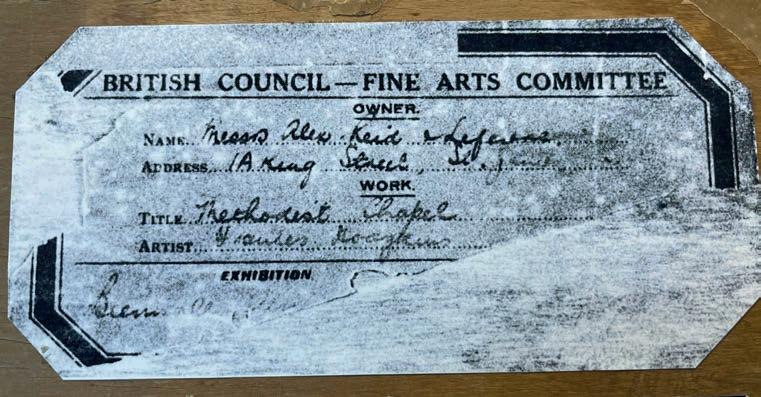 BRITISH COUNCIL — FINE ARTS COMMITTEE
OWNER.
NAME Messrs Alex. Reid & Lefevre
ADDRESS 1A King Street, St. James
WORK.
TITLE Methodist Chapel
ARTIST Frances Hodgkins
EXHIBITION